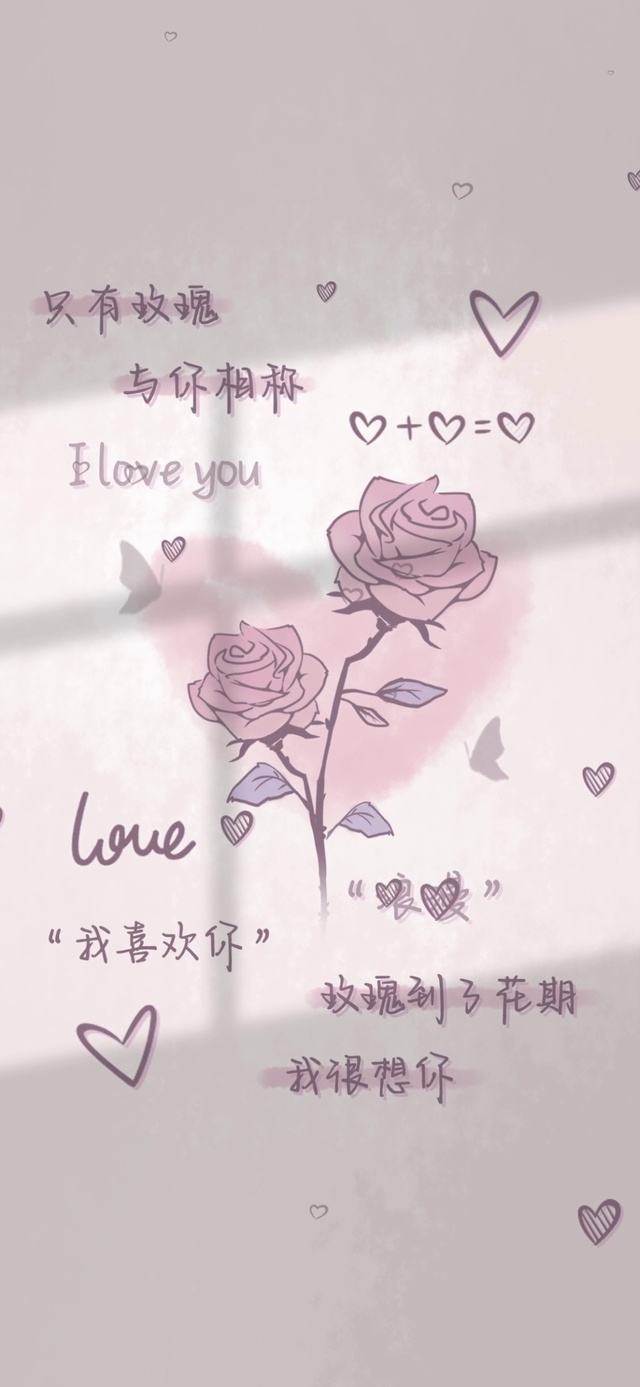 只有玫瑰
与你相称
I love you
♡+♡=♡
love
“浪漫”
“我喜欢你”
玫瑰到了花期
我很想你